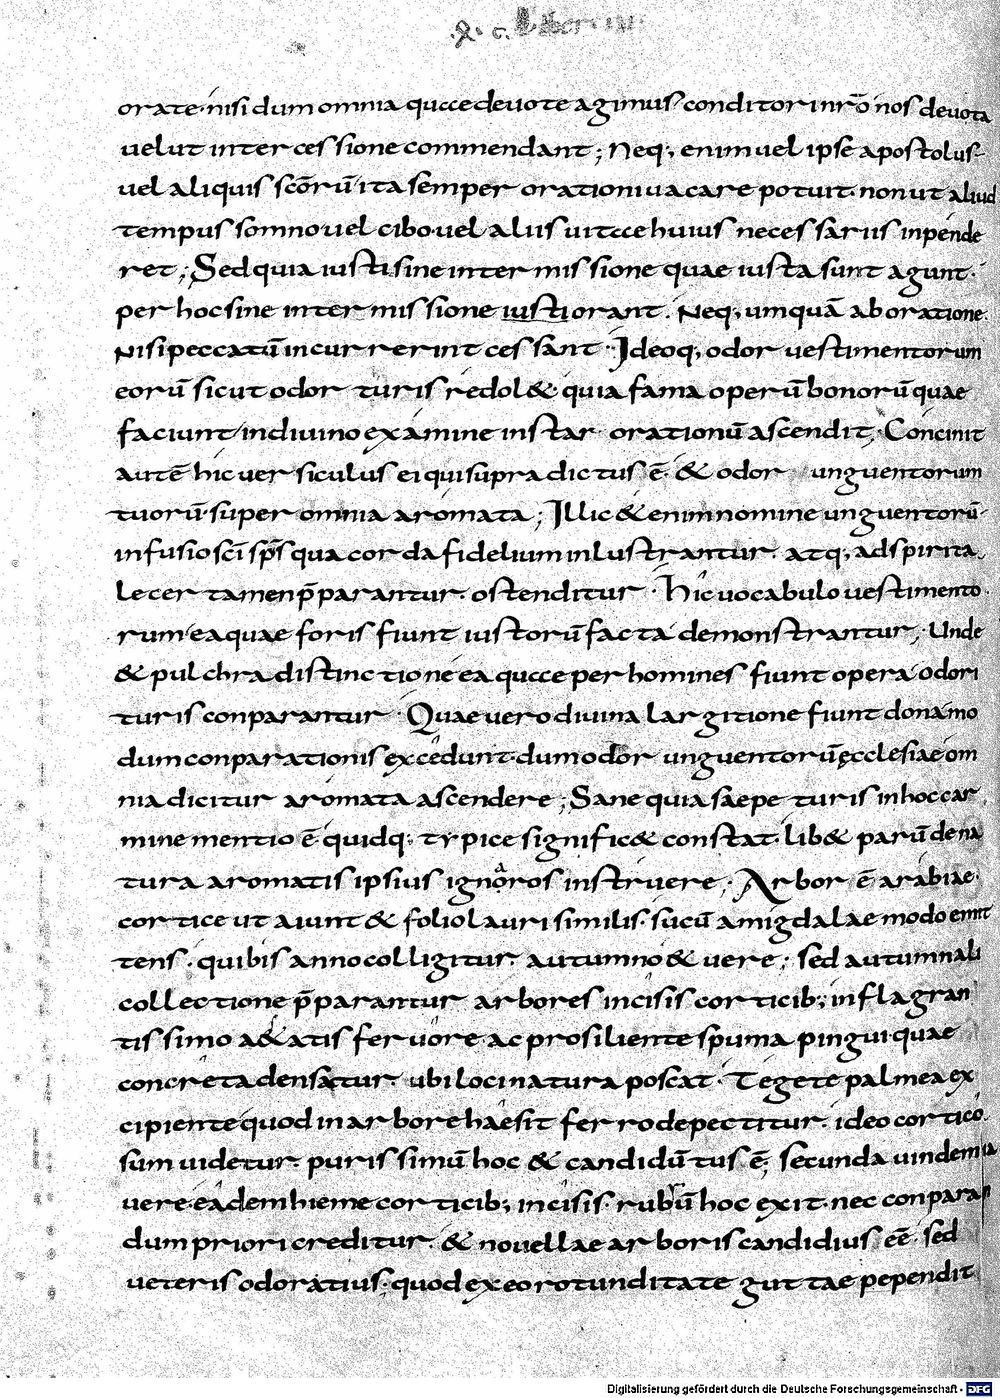 orate· nisi dum omnia quae deuote agimus conditori nr̄o nos deuota
uelut intercessione commendant; Neq; enim uel ipse apostolus
uel aliquis sc̄orū ita semper orationi uacare potuit· non ut aliud
tempus somno uel cibo uel aliis uitae huius necessariis inpende
ret; Sed quia iusti sine intermissione quae iusta sunt agunt·
per hoc sine intermissione iusti orant. Neq; umquā ab oratione
Nisi peccatū incurrerint cessant· Ideoq; odor uestimentorum
eorū sicut odor turis redol&· quia fama operū bonorū quae
faciunt in diuino examine instar orationū ascendit; Concinit
autē hic uersiculus ei qui supra dictus ē· & odor unguentorum
tuorū super omnia aromata; Illic &enim nomine unguentorū
infusio sc̄i sp̄s qua corda fidelium inlustrantur· atq; ad spirita
le certamen p̄parantur· ostenditur· hic uocabulo uestimento
rum ea quae foris fiunt iustorū facta demonstrantur; Unde
& pulchra distinctione ea quae per homines fiunt opera odori
turis conparantur· Quae uero diuina largitione fiunt dona mo
dum conparationis excedunt· dum odor unguentorū ęcclesiae om
nia dicitur aromata ascendere; Sane quia saepe turis in hoc car
mine mentio ē· quidq; typice signific& constat· lib& parū de na
tura aromatis ipsius ignaros instruere; Arbor ē arabiae·
cortice ut aiunt & folio lauri similis· sucū amigdalae modo emit
tens· qui bis anno colligitur· autumno & uere; sed autumnali
collectione p̄parantur arbores incisis corticib; in flagran
tissimo a&atis feruore· ac prosiliente spuma pingui· quae
concreta densatur· ubi loci natura poscat· Tegete palmea ex
cipiente quod in arbore haesit ferro depectitur· ideo cortico
sum uidetur· purissimū hoc & candidū tus ē; secunda uindemia
uere· eadem hieme corticib; incisis· rubrū hoc exit· nec conparan
dum priori creditur· & nouellae arboris candidius eē· sed
ueteris odoratius· quod ex eo rotunditate guttae pependit
Digitalisierung gefördert durch die Deutsche Forschungsgemeinschaft - DFG